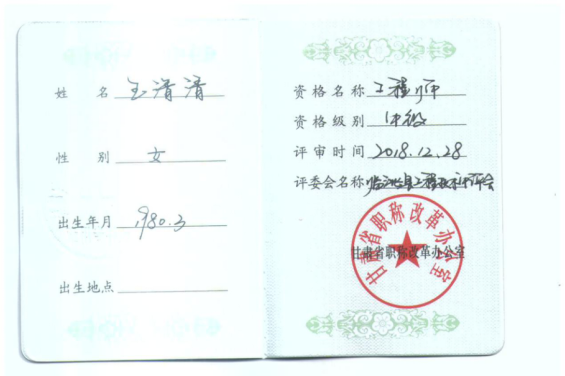 姓 名 王清清
性 别 女
出生年月 1980.3
出生地点
资格名称 工程师
资格级别 中级
评审时间 2018.12.28
评委会名称 临洮县工程技术评会
甘肃省职称改革办公室
甘肃省职称改革办公室